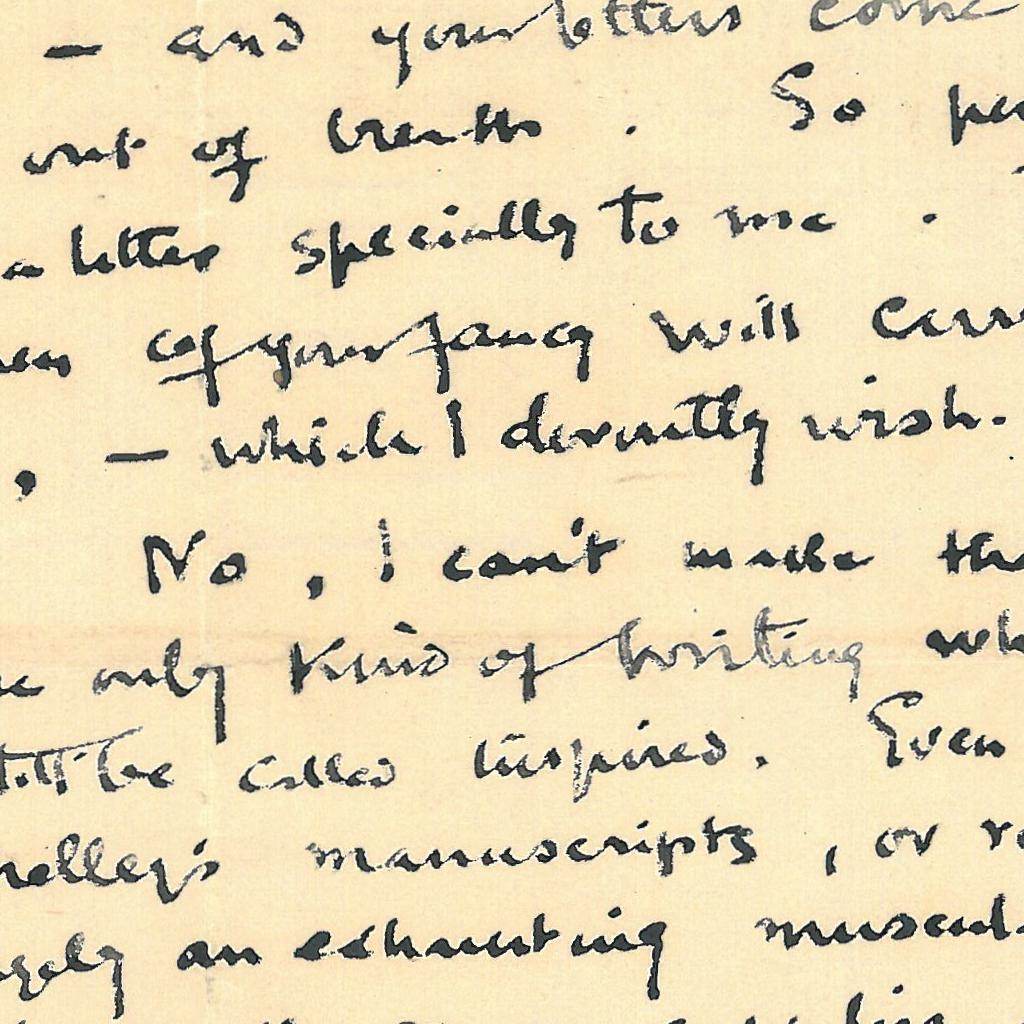 — and your letters come
out of breath. So per
a letter specially to me.
of your fancy will carr
, — which I devoutly wish.
No, I can't make the
only kind of writing wh
be called inspired. Even
helley's manuscripts, or ro
an exhausting muscul
his